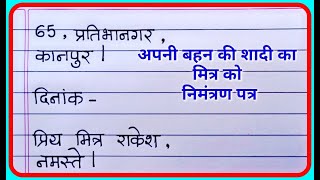 65, प्रतिभानगर,
कानपुर।
अपनी बहन की शादी का
मित्र को
निमंत्रण पत्र
दिनांक -
प्रिय मित्र राकेश,
नमस्ते।